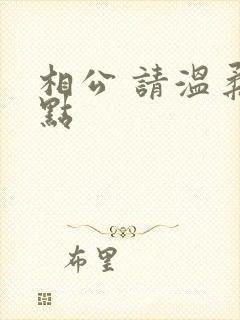 相公 請溫柔
點
布里